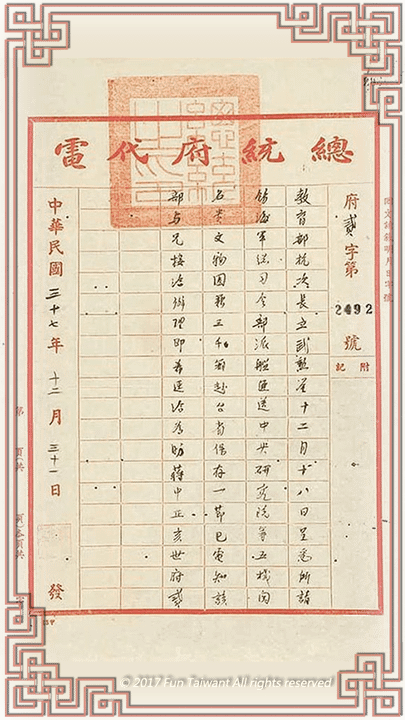 總統府代電
府貳字第2492號
附記
教育部杭次長立武勳鑒十二月十八日呈悉所請
飭海軍總司令部派艦運送中央研究院等五機關
名貴文物圖籍三千箱赴台省保存一節已電知該
部与兄接洽辦理即希逕洽為盼蔣中正亥世府貳
中華民國三十七年十二月三十一日發
© 2017 Fun Taiwant All rights reserved